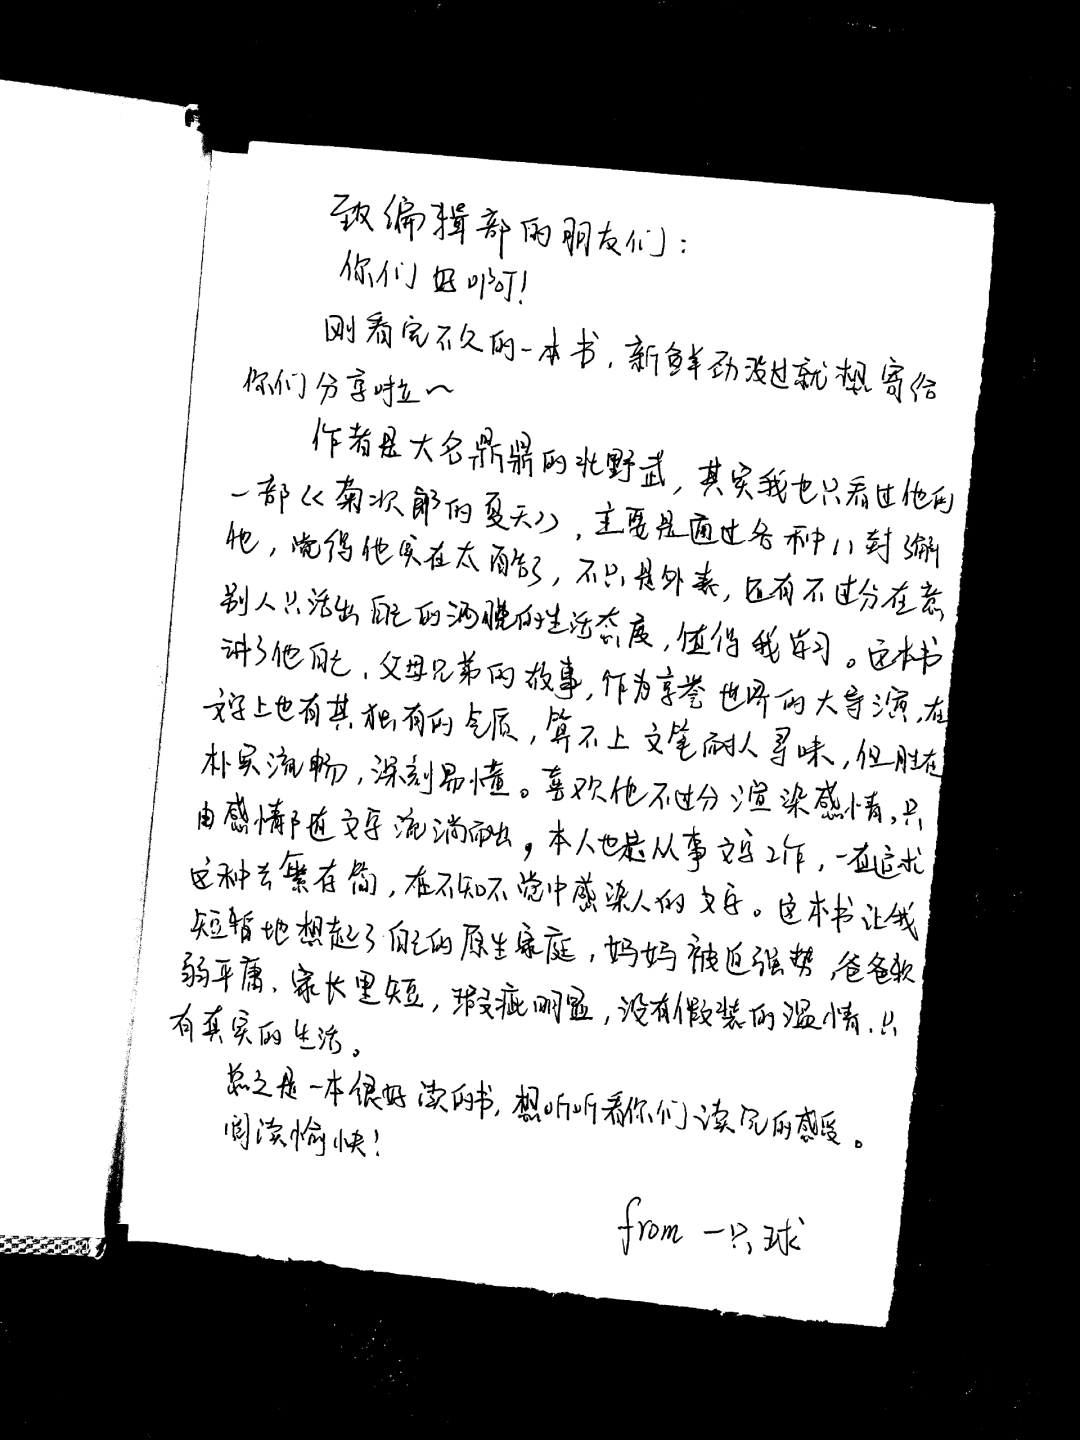 致编辑部的朋友们：
你们好啊！
刚看完不久的一本书，新鲜劲没过就想寄给
你们分享啦～
作者是大名鼎鼎的北野武，其实我也只看过他的
一部《菊次郎的夏天》，主要是通过各种小封了解
他，觉得他实在太酷了，不只是外表，还有不过分在意
别人只活出自己的洒脱的生活态度，值得我学习。这本书
讲了他自己、父母兄弟的故事，作为享誉世界的大导演，在
文字上也有其独有的气质，算不上文笔耐人寻味，但胜在
朴实流畅，深刻易懂。喜欢他不过分渲染感情，只
由感情随文字流淌而出，本人也是从事文字工作，一直追求
这种去繁存简，在不知不觉中感染人的文字。这本书让我
短暂地想起了自己的原生家庭，妈妈被迫强势，爸爸软
弱平庸，家长里短，瑕疵明显，没有假装的温情，只
有真实的生活。
总之是一本很好读的书，想听听看你们读完的感受。
阅读愉快！
from 一只球